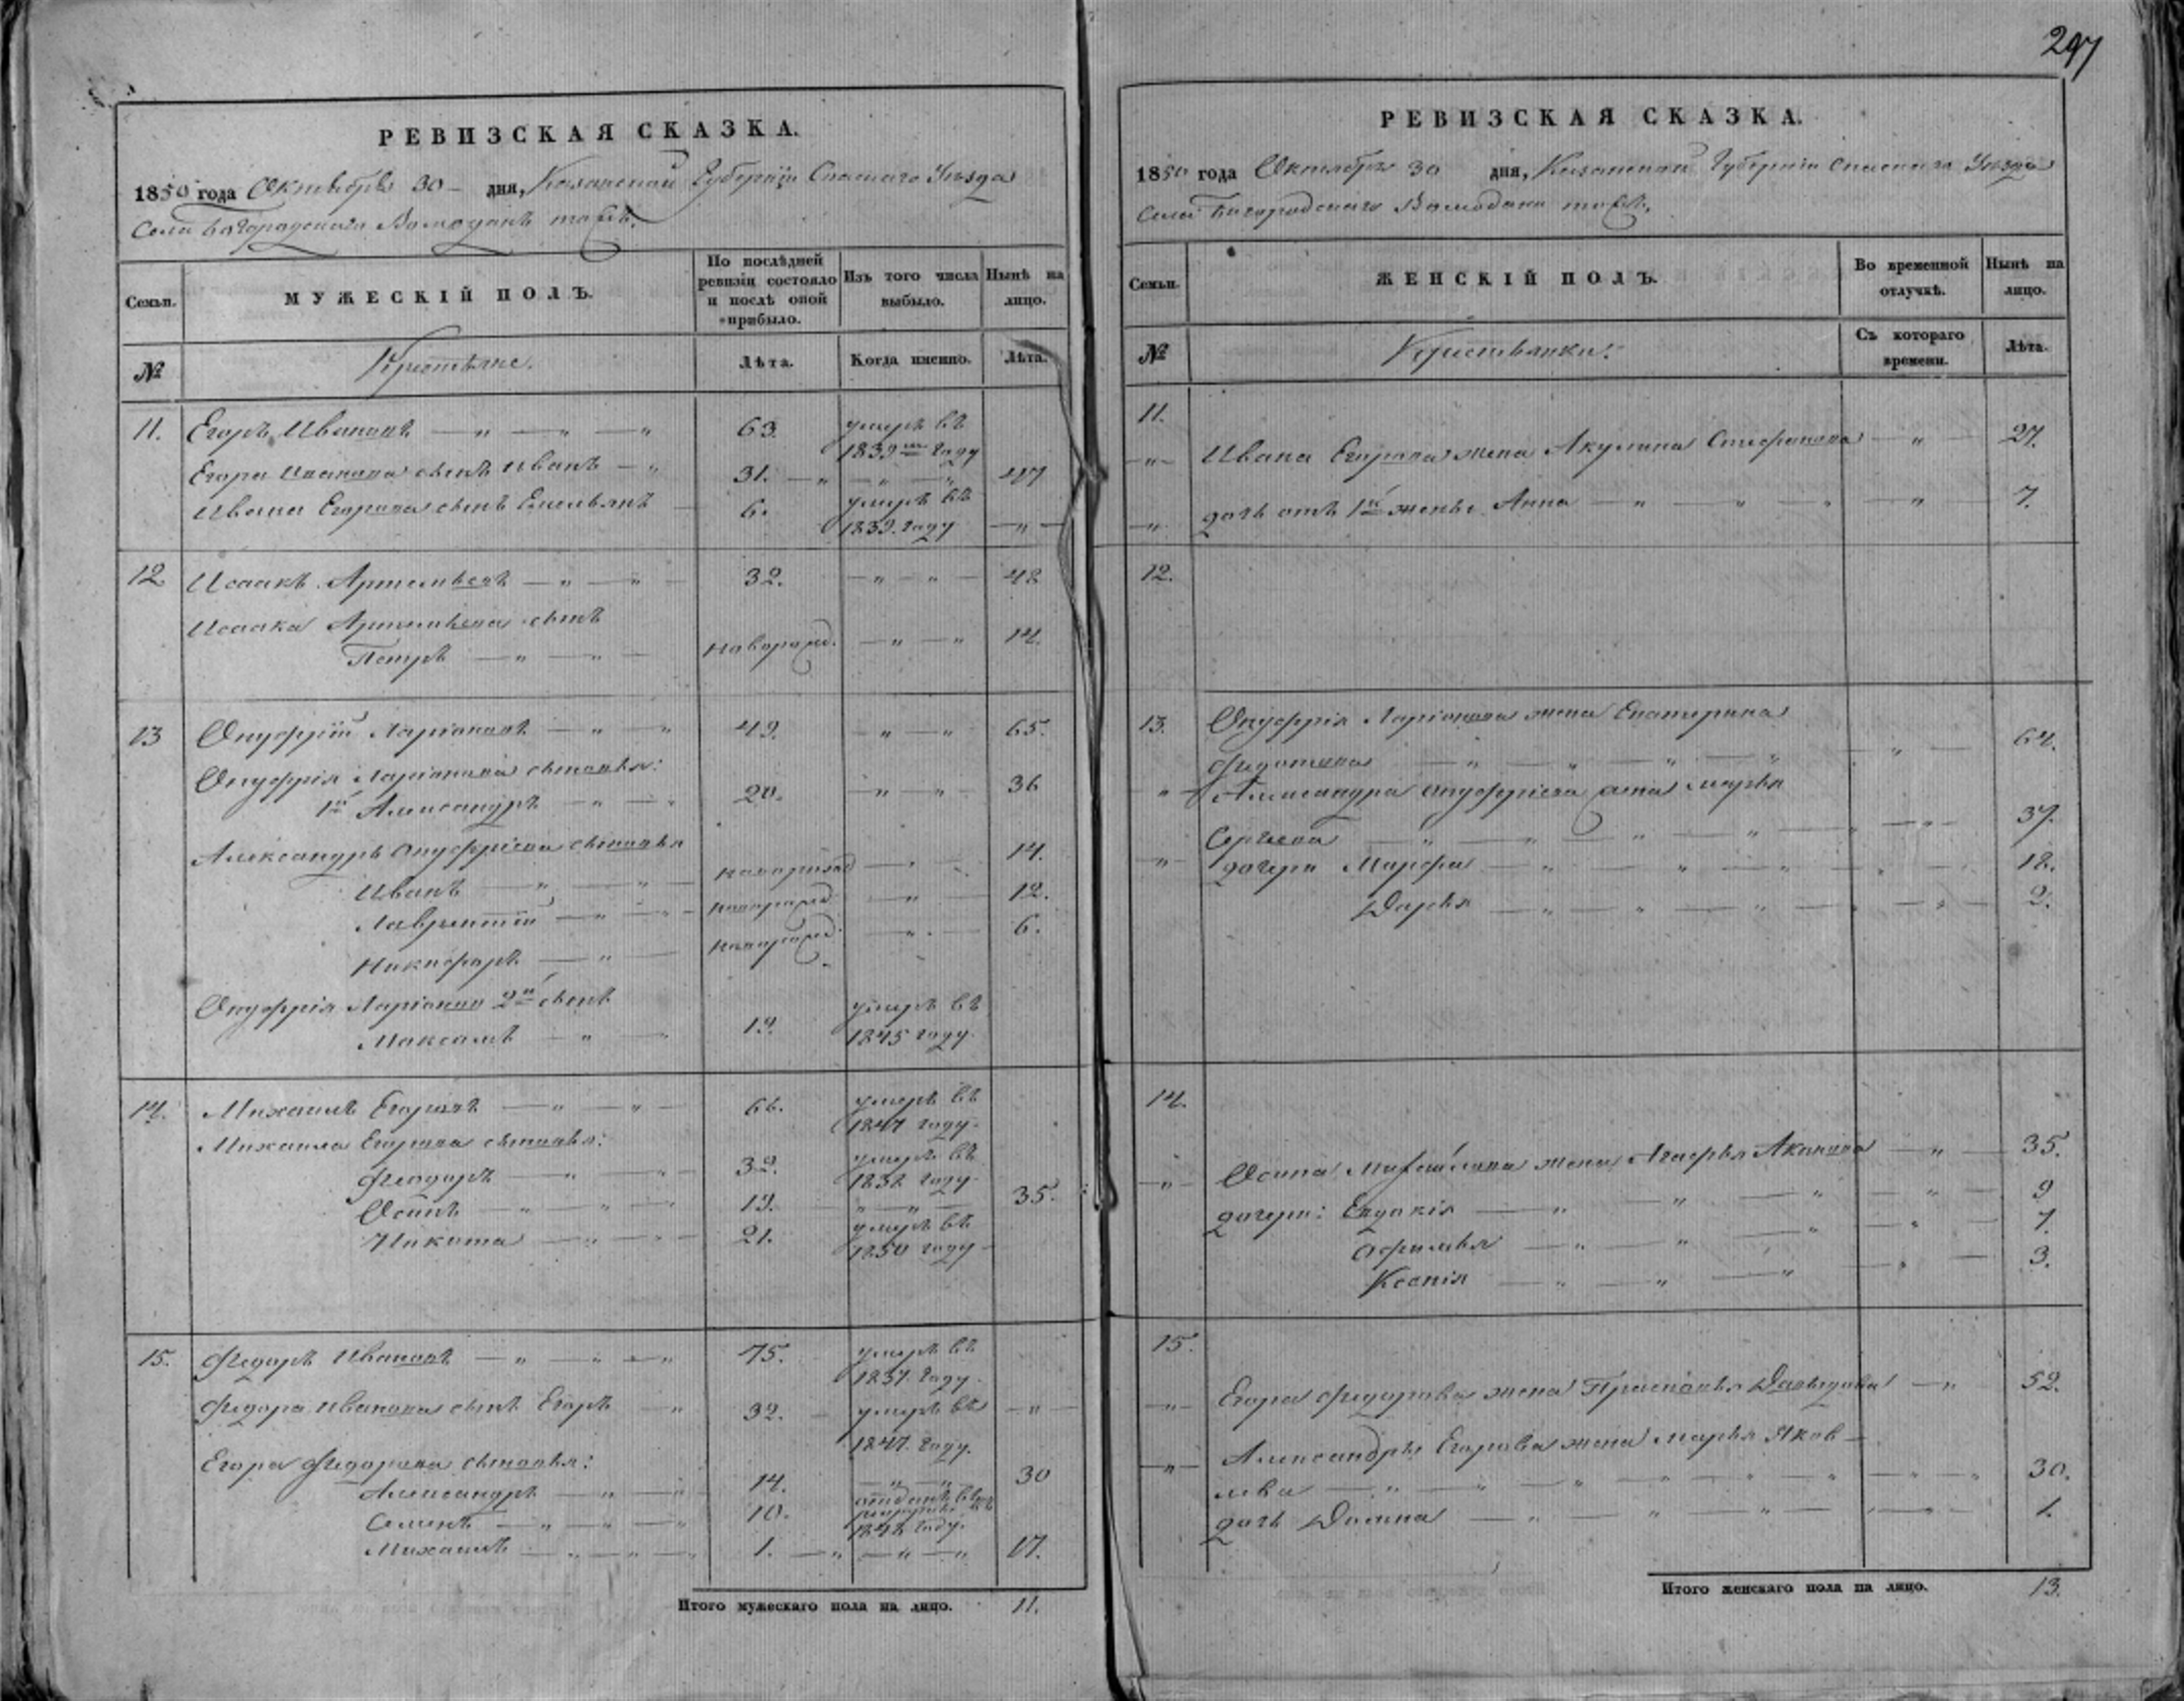 297
РЕВИЗСКАЯ СКАЗКА.
1850 года Октября 30 дня, Казанской Губернiи Спаскаго Уѣзда
Села Богородскаго тожъ.
Семьи.
МУЖЕСКIЙ ПОЛЪ.
По послѣдней ревизiи состояло и послѣ оной прибыло.
Изъ того числа выбыло.
Нынѣ на лицо.
№
Крестьяне.
Лѣта.
Когда именно.
Лѣта.
11. Егоръ Ивановъ — „ — „ — „ 63. умеръ въ 1839м году
Егора Иванова сынъ Иванъ — „ 31. — „ — „ — „ 47
Ивана Егорова сынъ Емельянъ 6. умеръ въ 1839. году — „ —
12 Исаакъ Артемьевъ — „ — „ — 32. — „ — „ — 48
Исаака Артемьева сынъ
Петръ — „ — „ — новорожд. — „ — „ 14.
13 Онуфрiй Ларiоновъ — „ — „ 49. — „ — „ 65.
Онуфрiя Ларiонова сыновья:
1й Александръ — „ — „ 20. — „ — „ — 36
Александръ Онуфрiева сыновья
Иванъ — „ — „ — новорожд — „ — 14.
Лаврентiй — „ — „ — новорожд. — „ — 12.
Никифоръ — „ — новорожд. — „ — 6.
Онуфрiя Ларiонов 2й сынъ
Максимъ — „ — 19. умеръ въ 1845 году.
14. Михаилъ Егоровъ — „ — „ — 66. умеръ въ 1847 году.
Михаила Егорова сыновья:
Феодоръ — „ — „ — 32. умеръ въ 1838 году.
Осипъ — „ — „ — „ 19. — „ — „ — 35.
Никита — „ — „ — 21. умеръ въ 1850 году —
15. Федоръ Ивановъ — „ — „ — „ 75. умеръ въ 1837. году.
Федора Иванова сынъ Егоръ — „ 32. умеръ въ 1847. году. — „ —
Егора Федорова сыновья:
Александръ — „ — „ 14. — „ — „ — 30
Семенъ — „ — „ — „ 10. отданъ въ рекруты въ 1848 году.
Михаилъ — „ — „ — „ 1. — „ — „ — „ 17.
Итого мужескаго пола на лицо. 11.
РЕВИЗСКАЯ СКАЗКА.
1850 года Октября 30 дня, Казанской Губернiи Спаскаго Уѣзда
Села Богородскаго тожъ.
Семьи.
ЖЕНСКIЙ ПОЛЪ.
Во временной отлучкѣ.
Нынѣ на лицо.
№
Крестьянки:
Съ котораго времени.
Лѣта.
11.
— „ — Ивана Егорова жена Акулина Стефанова — „ — 27.
— „ — дочь отъ 1й жены Анна — „ — „ — „ — „ — 7.
12.
13. Онуфрiя Ларiонова жена Екатерина
Федотова — „ — „ — „ — „ — „ — 64.
— „ — Александра Онуфрiева жена Марья
Сергеева — „ — „ — „ — „ — „ — „ — 37.
— „ — дочери Марфа — „ — „ — „ — „ — 18.
Дарья — „ — „ — „ — „ — „ — 2.
14.
— „ — Осипа Михайлова жена Агафья — „ — 35.
дочери: Евдокiя — „ — „ — „ — „ — 9
Афимья — „ — „ — „ — „ — 7.
Ксенiя — „ — „ — „ — „ — 3.
15.
— „ — Егора Федорова жена Прасковья Давыдова — „ 52.
— „ — Александръ Егорова жена Марья Яков-
лева — „ — „ — „ — „ — „ — „ — „ — „ 30.
дочь Домна — „ — „ — „ — „ — „ — 1.
Итого женскаго пола на лицо. 13.